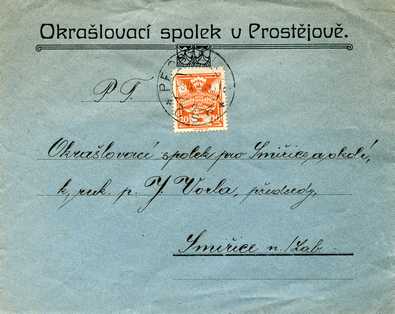 Okrašlovací spolek v Prostějově.
P. T.
Okrašlovací spolek pro Smiřice a okolí,
k ruk. p. J. Vorla, předsedy,
Smiřice n./Lab.